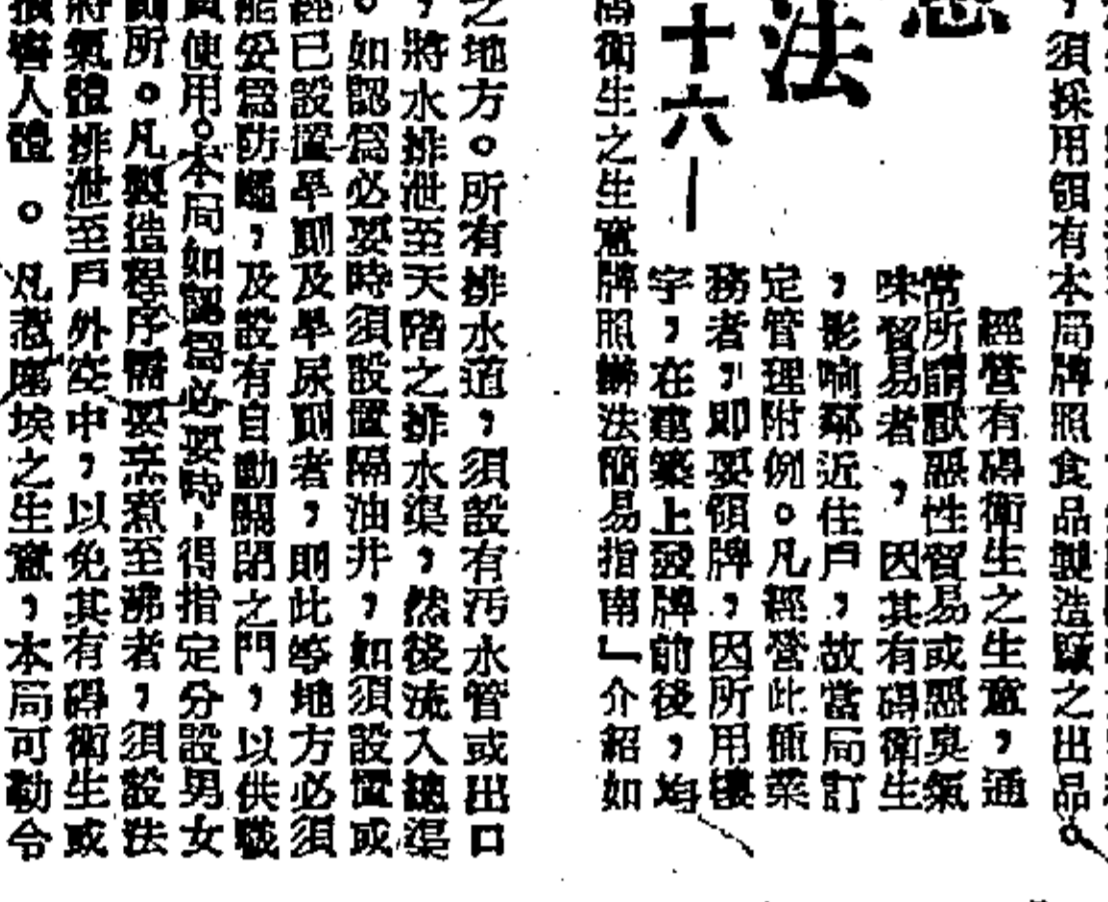 ，須採用領有本局牌照食品製造廠之出品。
法
十六—
經營有碍衞生之生意，通
常所謂厭惡性貿易或惡臭氣
味貿易者，因其有碍衞生
，影响鄰近住戶，故當局訂
定管理附例。凡經營此種業
務者，即要領牌，因所用樓
宇，在建築上設牌前後，均
衞生之生意牌照辦法簡易指南」介紹如
之地方。所有排水道，須設有汚水管或出口
，將水排泄至天階之排水渠，然後流入總渠
。如認爲必要時須設置隔油井，如須設置或
經已設置旱厠及旱尿厠者，則此等地方必須
能妥爲防蠅，及設有自動關閉之門，以供職
員使用。本局如認爲必要時，得指定分設男女
厠所。凡製造程序需要烹煮至沸者，須設法
將氣體排泄至戶外空中，以免其有碍衞生或
損害人體。凡惹塵埃之生意，本局可勒令